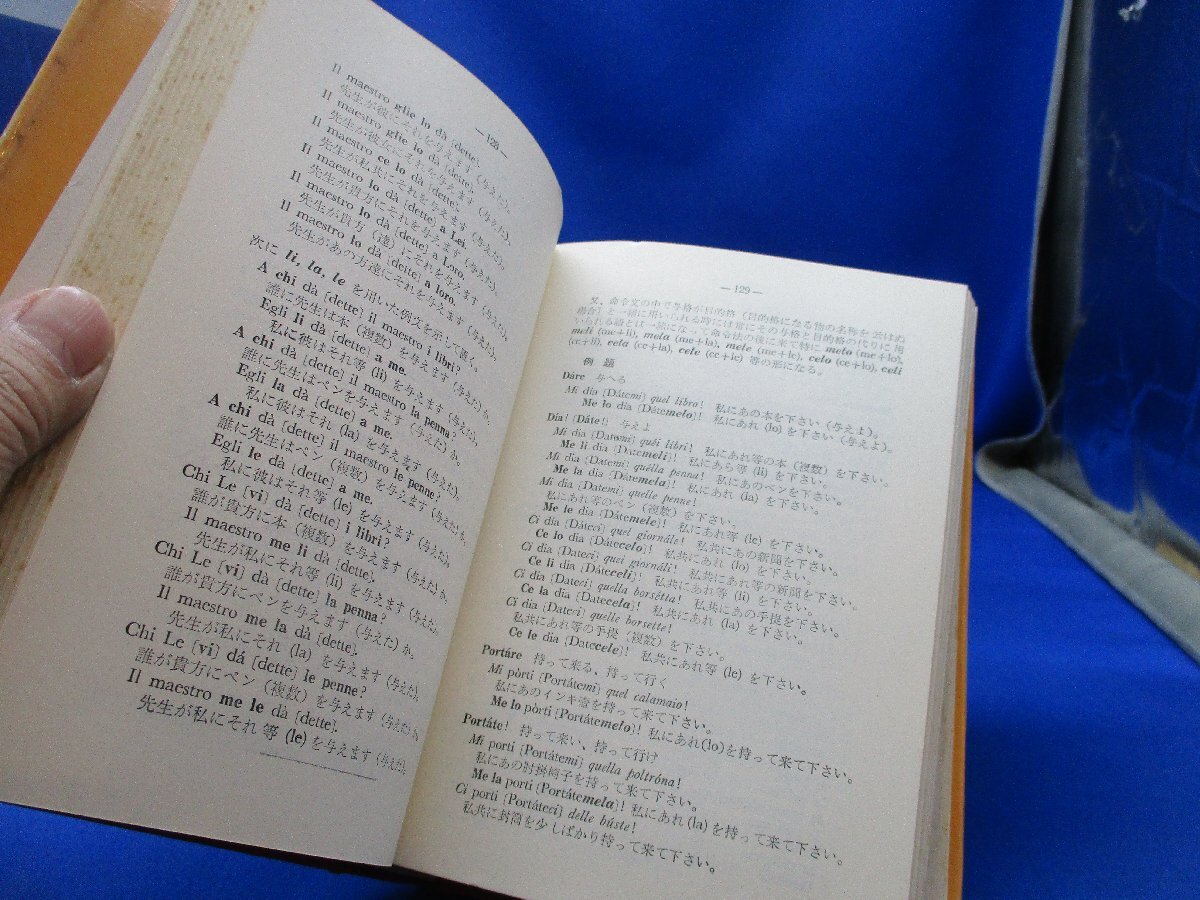 — 128 —
Il maestro glie lo dà [dette].
先生が彼にそれを与えます（与えた）。
Il maestro glie lo dà [dette].
先生が彼女にそれを与えます（与えた）。
Il maestro ce lo dà [dette].
先生が私共にそれを与えます（与えた）。
Il maestro lo dà [dette] a Lei.
先生が貴方にそれを与えます（与えた）。
Il maestro lo dà [dette] a Loro.
先生が貴方（達）にそれを与えます（与えた）。
Il maestro lo dà [dette] a loro.
先生があの方達にそれを与えます（与えた）。
次に li, la, le を用いた例文を示して置く。
A chi dà [dette] il maestro i libri?
誰に先生は本（複数）を与えます（与えた）か。
Egli li dà [dette] a me.
私に彼はそれ等 (li) を与えます（与えた）。
A chi dà [dette] il maestro la penna?
誰に先生はペンを与えます（与えた）か。
Egli la dà [dette] a me.
私に彼はそれ (la) を与えます（与えた）。
A chi dà [dette] il maestro le penne?
誰に先生はペン（複数）を与えます（与えた）か。
Egli le dà [dette] a me.
私に彼はそれ等 (le) を与えます（与えた）。
Chi Le [vi] dà [dette] i libri?
誰が貴方に本（複数）を与えます（与えた）か。
Il maestro me li dà [dette].
先生が私にそれ等 (li) を与えます（与えた）。
Chi Le [vi] dà [dette] la penna?
誰が貴方にペンを与えます（与えた）か。
Il maestro me la dà [dette].
先生が私にそれ (la) を与えます（与えた）。
Chi Le [vi] dá [dette] le penne?
誰が貴方にペン（複数）を与えます（与えた）か。
Il maestro me le dà [dette].
先生が私にそれ等 (le) を与えます（与えた）。
— 129 —
又、命令文の中で与格が目的格（目的格になる物の名称を云はぬ
場合）と一緒に用いられる時には常にその与格と目的格の代りに用
いられる語とは一緒になって命令法の後に来て特に melo (me+lo),
meli (me+li), mela (me+la), mele (me+le), celo (ce+lo), celi
(ce+li), cela (ce+la), cele (ce+le) 等の形になる。
例 題
Dáre 与へる
Mi dia [Dátemi] quel libro! 私にあの本を下さい（与えよ）。
Me lo dia [Dátemelo]! 私にあれ (lo) を下さい（与えよ）。
Dia! [Dáte!] 与えよ
Mi dia [Datemi] quéi libri! 私にあれ等の本（複数）を下さい。
Me li dia [Datemeli]! 私にあら等 (li) を下さい。
Mi dia [Datemi] quélla penna! 私にあのペンを下さい。
Me la dia [Datemela]! 私にあれ (la) を下さい。
Mi dia [Datemi] quelle penne!
私にあれ等のペン（複数）を下さい。
Me le dia [Dátemele]! 私にあれ等 (le) を下さい。
Ci dia [Dáteci] quel giornále! 私共にあの新聞を下さい。
Ce lo dia [Datecelo]! 私共にあれ (lo) を下さい。
Ci dia [Dateci] quei giornáli! 私共にあれ等の新聞を下さい。
Ce li dia [Dáteceli]! 私共にあれ等 (li) を下さい。
Ci dia [Dateci] quella borsétta! 私共にあの手提を下さい。
Ce la dia [Datecela]! 私共にあれ (la) を下さい。
Ci dia [Dateci] quelle borsette!
私共にあれ等の手提（複数）を下さい。
Ce le dia [Datecele]! 私共にあれ等 (le) を下さい。
Portáre 持って来る、持って行く
Mi pòrti [Portátemi] quel calamaio!
私にあのインキ壺を持って来て下さい。
Me lo pòrti [Portátemelo]! 私にあれ(lo)を持って来て下さい。
Portáte! 持って来い、持って行け
Mi porti [Portátemi] quella poltróna!
私にあの肘掛椅子を持って来て下さい。
Me la porti [Portátemela]! 私にあれ(la)を持って来て下さい。
Ci porti [Portáteci] delle búste!
私共に封筒を少しばかり持って来て下さい。